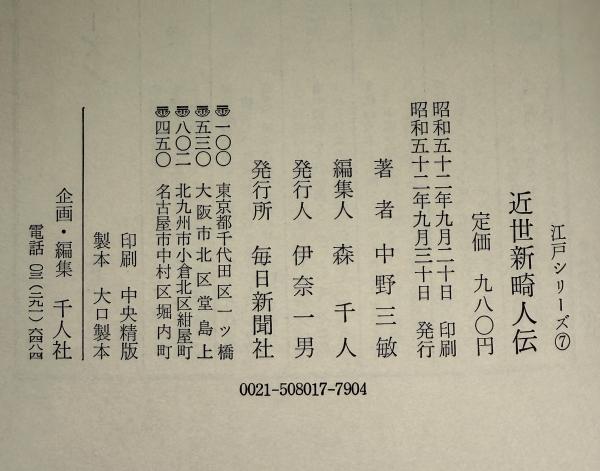 江戸シリーズ⑦
近世新畸人伝
定価 九八〇円
昭和五十二年九月二十日 印刷
昭和五十二年九月三十日 発行
著者 中野三敏
編集人 森 千人
発行人 伊奈一男
発行所 毎日新聞社
〠一〇〇 東京都千代田区一ッ橋
〠五三〇 大阪市北区堂島上
〠八〇二 北九州市小倉北区紺屋町
〠四五〇 名古屋市中村区堀内町
印刷 中央精版
製本 大口製本
企画・編集 千人社
電話 〇三(二九一)六四八四
0021-508017-7904